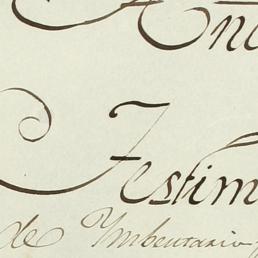 An
Testim
de Ymbentario